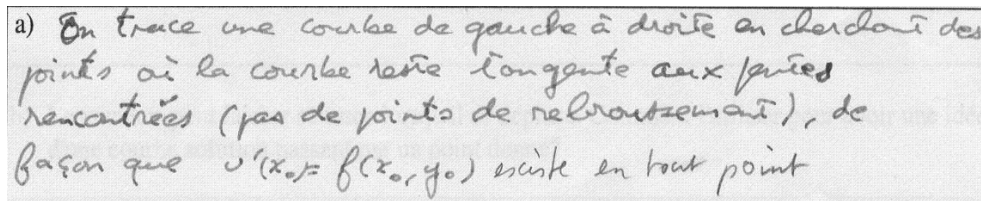 a) On trace une courbe de gauche à droite en cherchant des
points où la courbe reste tangente aux pentes
rencontrées (pas de points de rebroussement), de
façon que υ'(x₀) = f(x₀, y₀) existe en tout point